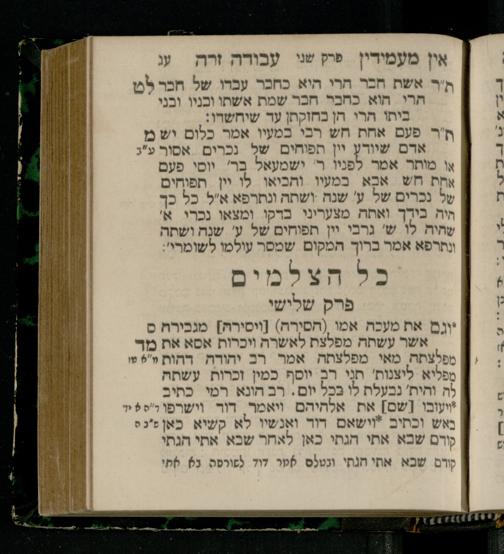 אין מעמידין פרק שני עבודה זרה עג
ת״ר אשת חבר הרי היא כחבר עבדו של חבר לט
הרי הוא כחבר חבר שמת אשתו ובניו ובני
ביתו הרי הן בחזקתן עד שיחשדו:
ת״ר פעם אחת חש רבי במעיו אמר כלום יש מ
אדם שיודע יין תפוחים של נכרים אסור ע״ב
או מותר אמר לפניו ר׳ ישמעאל בר׳ יוסי פעם
אחת חש אבא במעיו והביאו לו יין תפוחים
של נכרים של ע׳ שנה ושתה ונתרפא א״ל כל כך
היה בידך ואתה מצערני בדקו ומצאו נכרי א׳
שהיה לו ש׳ גרבי יין תפוחים של ע׳ שנה ושתה
ונתרפא אמר ברוך המקום שמסר עולמו לשומרי׳:
כל הצלמים
פרק שלישי
*וגם את מעכה אמו (הסירה) [ויסירה] מגבירה ס
אשר עשתה מפלצת לאשרה ויכרות אסא את מד
מפלצתה מאי מפלצתה אמר רב יהודה דהות מ״א טו
מפליא ליצנות׳ תני רב יוסף כמין זכרות עשתה
לה והית׳ נבעלת לו בכל יום. רב הונא רמי כתיב
*ויעזבו [שם] את אלהיהם ויאמר דוד וישרפו ד״ה א יד
באש וכתיב *וישאם דוד ואנשיו לא קשיא כאן ש״ב ה
קודם שבא אתי הגתי כאן לאחר שבא אתי הגתי
קודם שבא אתי הגתי ובטלם אמר דוד לשורפם בא אתי